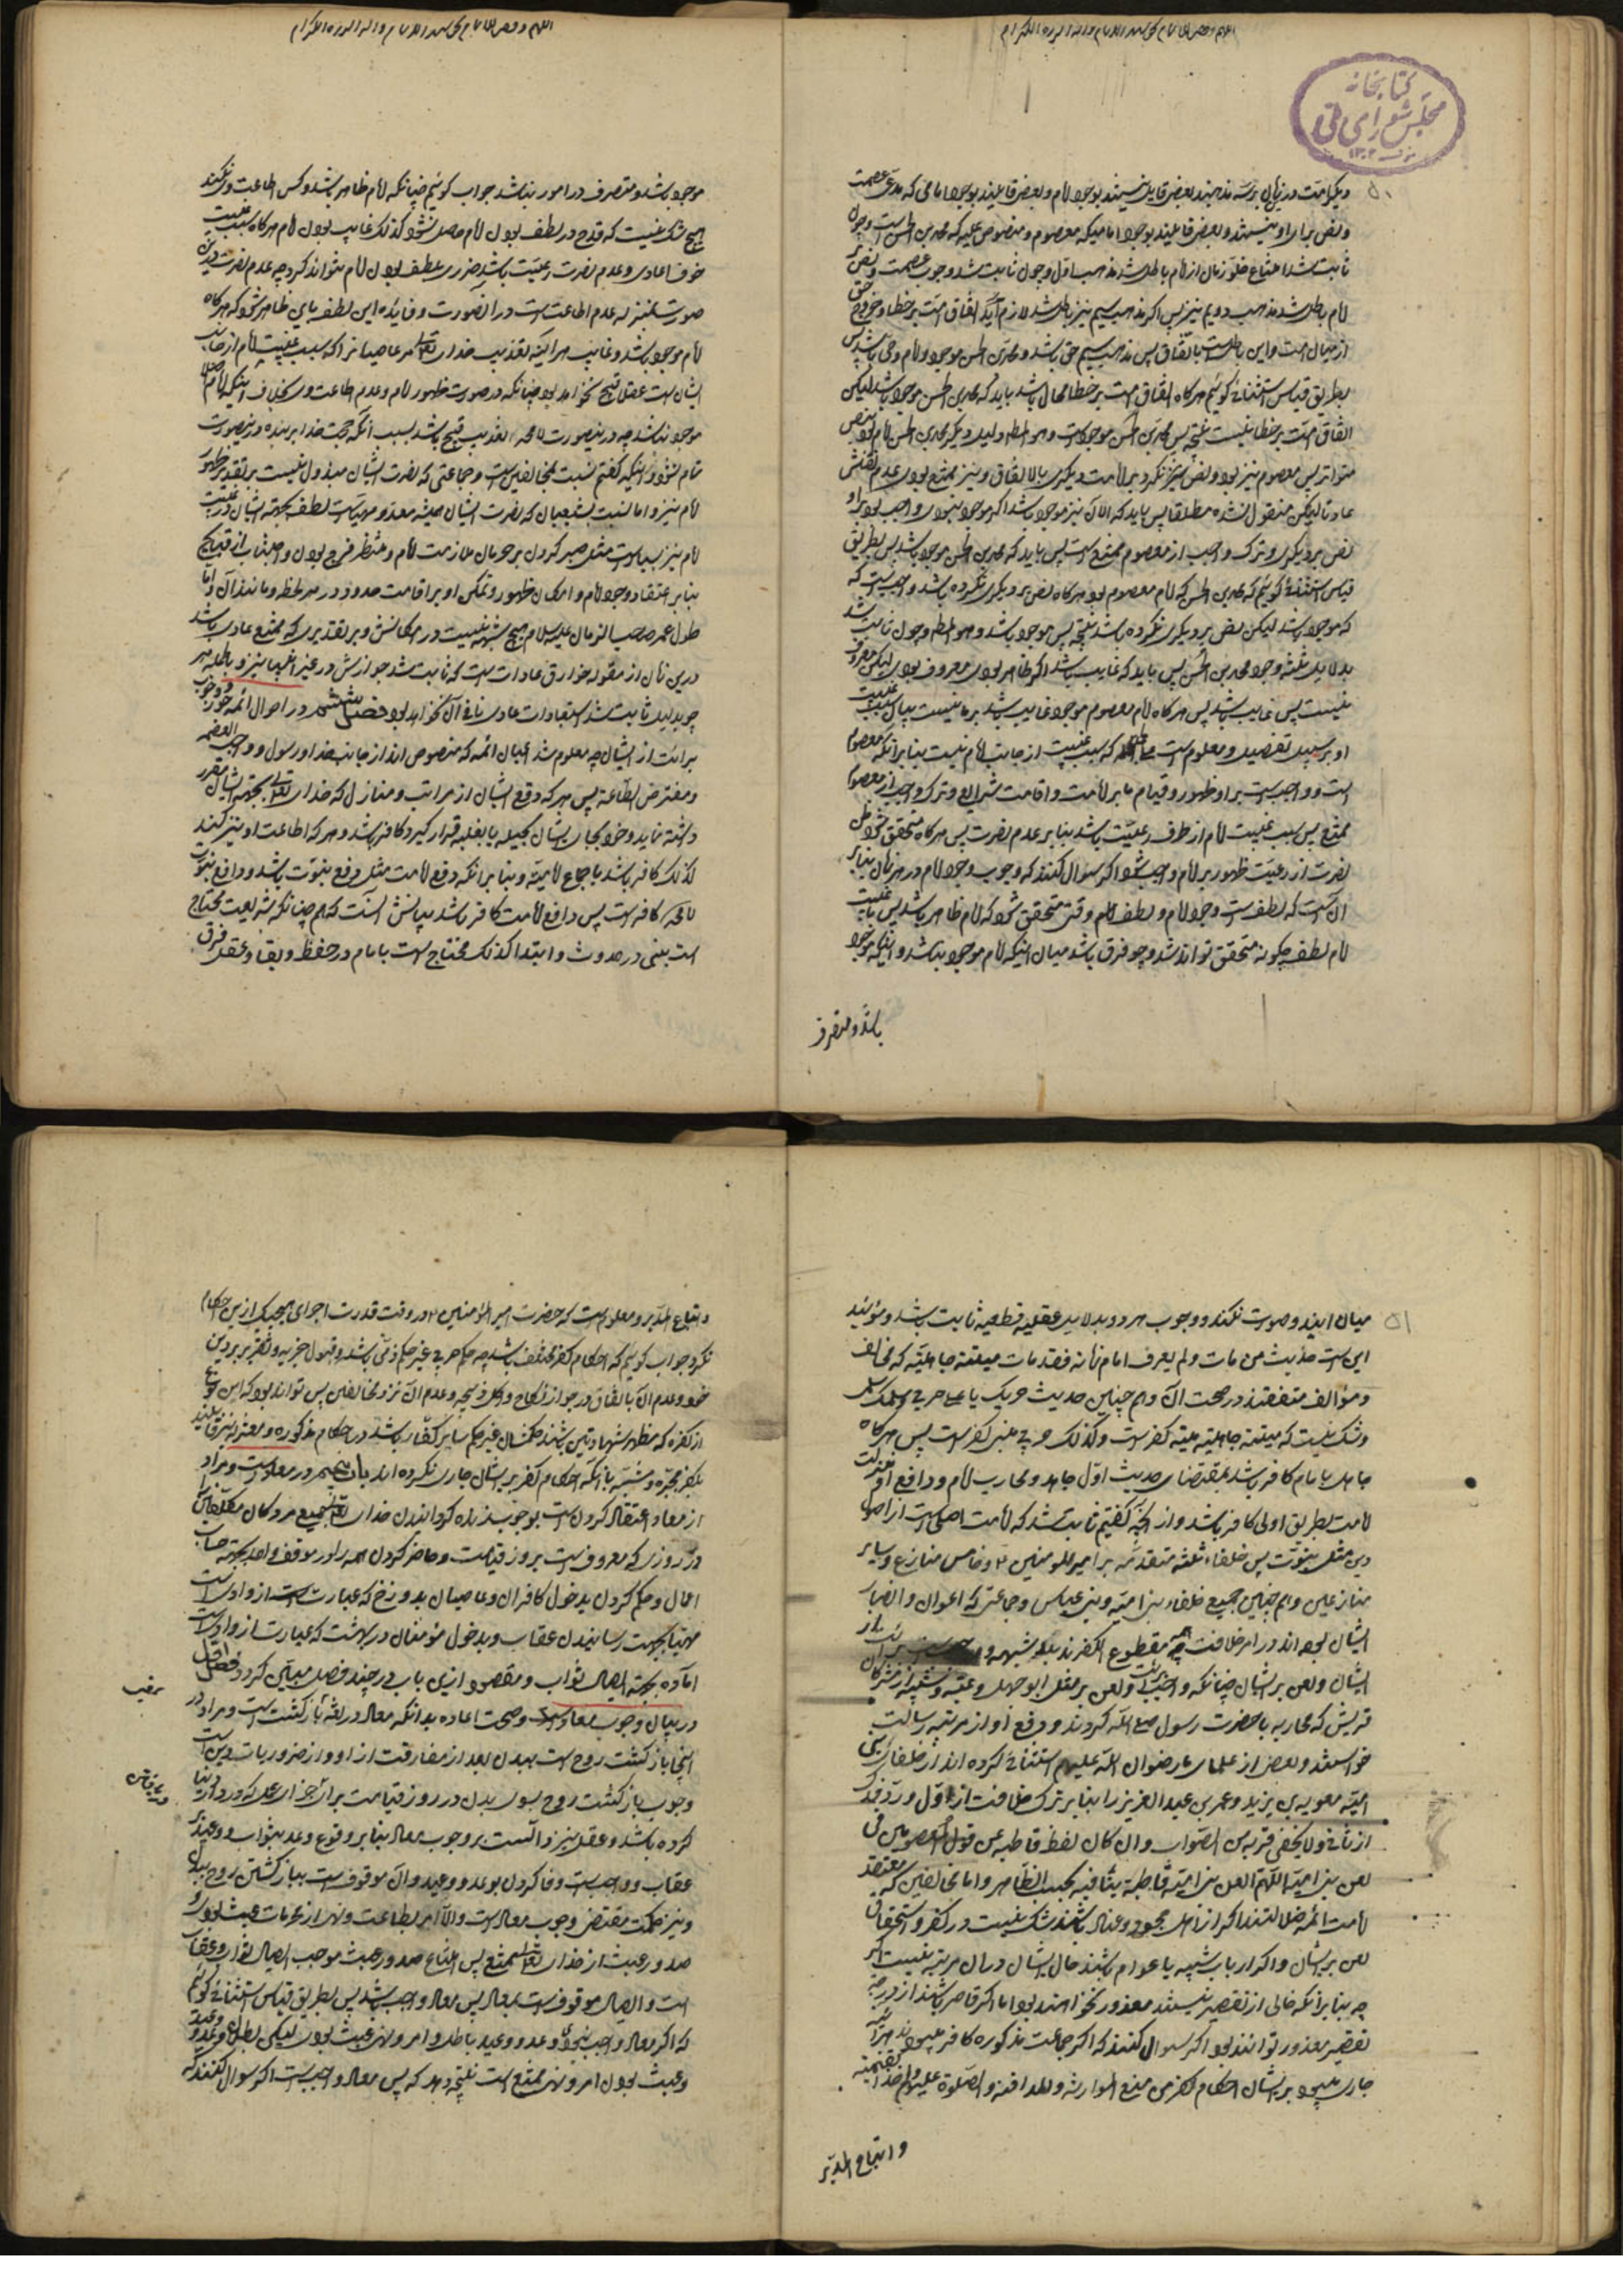 کتابخانه
مجلس شورای ملی
۵۰
و یک امت درین زمان بر سه مذهبند بعضی قایل نیستند بوجود امام و بعضی قایلند بوجود امامی که مدعی عصمت
و نص برای او نیستند و بعضی قایلند بوجود امامی که معصوم و منصوص علیه که محمد بن الحسن است و چون
ثابت شد امتناع خلو زمان از امام باطل شد مذهب اول و چون ثابت شد وجوب عصمت و نص
امام باطل شد مذهب دویم نیز پس اگر مذهب سیم نیز باطل شد لازم آید اتفاق امت بر خطا و خروج حق
از میان امت و این باطلست باتفاق پس مذهب سیم حق باشد و محمد بن الحسن موجود و امام و حی باشد پس
بطریق قیاس استثنائی گوئیم هر گاه اتفاق امت بر خطا محال باشد باید که محمد بن الحسن موجود باشد لیکن
اتفاق امت بر خطا نیست نتیجه پس محمد بن الحسن موجود است و هو المطلوب و دلیل دیگر محمد بن الحسن امام بود بنص
متواتر پس معصوم نیز بود و نص نیز نکرد بر امامت دیگری بالاتفاق و نیز ممتنع بودی عدم نقلش
عادتا لیکن منقول نشده مطلقا پس باید که الآن نیز موجود باشد اگر موجود نبودی واجب بودی بر او
نص بر دیگری و ترک واجب از معصوم ممتنع است پس باید که محمد بن الحسن موجود باشد پس بطریق
قیاس استثنائی گوئیم که محمد بن الحسن که امام معصوم بود هر گاه نص بر دیگری نکرده باشد واجبست که
که موجود باشد لیکن نص بر دیگری نکرده باشد نتیجه پس موجود باشد و هو المطلوب و چون ثابت شد
بدلایل ثلثه وجود محمد بن الحسن پس باید که غایب باشد اگر ظاهر بودی معروف بودی لیکن معروف
نیست پس غایب باشد پس هر گاه امام معصوم موجود غایب باشد بر ما نیست بیان سبب غیبت
او بر سبیل تفصیل و معلوم است که سبب غیبت از جانب امام نیست بنابر آنکه معصوم
است و واجب است بر او ظهور و قیام بامر امامت و اقامت شرایع و ترک واجب از معصوم
ممتنع پس سبب غیبت امام از طرف رعیت باشد بنابر عدم نصرت پس هر گاه متحقق شود
نصرت از رعیت ظهور بر امام واجب شود اگر سوال کنند که وجوب وجود امام در هر زمان بنابر
آن است که لطف است وجود امام و لطف امام وقتی متحقق شود که امام ظاهر باشد پس با غیبت
امام لطف چگونه متحقق تواند شد و چه فرق باشد میان اینکه امام موجود نباشد و اینکه موجود
باشد و متصرف
موجود باشد و متصرف در امور نباشد جواب گوئیم چنانکه امام ظاهر باشد و کس اطاعت وی نکند
هیچ شک نیست که قدح در لطف بودن امام حاصل نشود کذلک غایب بودن امام هر گاه سبب غیبت
خوف اعادی و عدم نصرت رعیت باشد ضرری بلطف بودن امام نتواند کرد چه عدم نصرت درین
صورت بمنزله عدم اطاعت است در آن صورت و فایده این لطف باین ظاهر شود که هر گاه
امام موجود باشد و غایب هر آینه تعذیب خدای تعالی مر عاصیانرا که سبب غیبت امام از جانب
ایشان است عقلا قبیح نخواهد بود چنانکه در صورت ظهور امام و عدم اطاعت وی بخلاف اینکه امام اصلا
موجود نباشد چه درین صورت لا محاله تعذیب قبیح باشد بسبب آنکه حجت خدا بر بنده درین صورت
تمام نشود و اینکه گفتم نسبت بمخالفین است و جماعتی که نصرت ایشان مبذول نیست بر تقدیر ظهور
امام نیز و اما نسبت بشیعیان که نصرت ایشان همیشه معد و مهیاست لطف بجهة ایشان در غیبت
امام نیز بسیار است مثل صبر کردن بر حرمان ملازمت امام و منتظر فرج بودن و اجتناب از قبایح
بنابر اعتقاد وجود امام و امکان ظهور و تمکن او بر اقامت حدود در هر لحظه و مانند آن و اما
طول عمر صاحب الزمان علیه السلام هیچ شبهه نیست در امکانش و بر تقدیری که ممتنع عادی باشد
درین زمان از مقوله خوارق عادات است که ثابت شد جوازش در غیر انبیا نیز و بالجمله هر
چه بدلیل ثابت شد استبعادات عادی نافی آن نخواهد بود فصل ششم در احوال ائمه جور و وجوب
برائت از ایشان چه معلوم شد اعیان ائمه که منصوص اند از جانب خدا و رسول و واجب العصمه
و مفترض الطاعة پس هر که دفع ایشان از مراتب و منازل که خدای تعالی بجهة ایشان مقرر
داشته نماید و خود بجای ایشان بحیله یا بغلبه قرار گیرد کافر باشد و هر که اطاعت او نیز کند
کذلک کافر باشد باجماع امامیه و بنابر آنکه دفع امامت مثل دفع نبوت باشد و دافع نبوت
لا محاله کافر است پس دافع امامت کافر باشد بیانش آنست که هم چنانکه شریعت محتاج
است بنبی در حدوث و ابتدا کذلک محتاج است بامام در حفظ و بقا و عقل فرق
۵۱
میان ایندو صورت نکند و وجوب هر دو بدلایل عقلیه قطعیه ثابت باشد و مؤید
این است حدیث من مات و لم یعرف امام زمانه فقد مات میتة جاهلیة که مخالف
و مؤالف متفقند در صحت آن و هم چنین حدیث حربک یا علی حربی و سلمک سلمی
و شک نیست که میتة جاهلیة میته کفر است و کذلک حرب نبی کفر است پس هر گاه
جاهل بامام کافر باشد بمقتضای حدیث اول جاحد و محارب امام و دافع او از منزلت
امامت بطریق اولی کافر باشد و از آنچه گفتیم ثابت شد که امامت اصلی است از اصول
دین مثل نبوت پس خلفاء ثلثه متقدمه بر امیر المؤمنین و خامس منازع و سایر
منازعین و هم چنین جمیع خلفاء بنی امیه و بنی عباس و جماعتی که اعوان و انصار
ایشان بوده اند در امر خلافت همه مقطوع الکفرند بلا شبهه و
ایشان و لعن بر ایشان چنانکه واجبست برائت و لعن بر مثل ابو جهل و عتبه و شیبه از مشرکان
قریش که محاربه با حضرت رسول صلی الله کردند و دفع او از مرتبه رسالت
خواستند و بعضی از علمای ما رضوان الله علیهم استثنائی کرده اند از خلفای بنی
امیه معویه بن یزید و عمر بن عبد العزیز را بنابر ترک خلافت از اول و رد فدک
از ثانی و لا یخفی قربه من الصواب و ان کان لفظ قاطبه من قول المعصومین فی
لعن بنی امیه اللهم العن بنی امیه قاطبة ینافیه بحسب الظاهر و اما مخالفین که معتقد
امامت ائمه ضلالتند اگر از اهل جحود و عناد باشند شک نیست در کفر و استحقاق
لعن بر ایشان و اگر ارباب شبهه یا عوام باشند حال ایشان در آن مرتبه نیست اگر
چه بنابر آنکه خالی از تقصیر نیستند معذور نخواهند بود اما اگر قاصر باشند از درجه
تقصیر معذور توانند بود اگر سوال کنند که اگر جماعت مذکوره کافر میبودند هر آینه
جاری میبود بر ایشان احکام کفر من منع الموارثه و المدافنه و الصلوة علیهم و اخذ الغنیمة
و اتباع المدبر
و اتباع المدبر و معلوم است که حضرت امیر المؤمنین در وقت قدرت اجرای هیچیک ازین احکام
نکرد جواب گوئیم که احکام کفر مختلف باشد چه حکم حربی غیر حکم ذمی باشد و قبول جزیه و تقریر بر دین
خود و عدم آن باتفاق و در جواز نکاح و اکل ذبیحه و عدم آن نزد مخالفین پس تواند بود که این نوع
از کفره که مظهر شهادتین باشند حکمشان غیر حکم سایر کفار باشد در احکام مذکوره و معتزله نیز قایلند
بکفر مجبره و مشبهه با آنکه احکام کفر بر ایشان جاری نکرده اند باب پنجم در معاد است و مراد
از معاد اعتقاد کردن است بوجوب زنده گردانیدن خدای تعالی جمیع مردگان مکلفان
در روزی که معروفست بروز قیامت و حاضر کردن همه را در موقف واحد بجهة حساب
اعمال و حکم کردن بدخول کافران و عاصیان بدوزخ که عبارت است از دار است
مهیا بجهت رسانیدن عقاب و بدخول مؤمنان در بهشت که عبارت از دار است
آماده بجهة ایصال ثواب و مقصود ازین باب در چند فصل مبین گردد فصل اول
در بیان وجوب معاد و صحت اعاده بدانکه معاد در لغة بازگشت است و مراد در
اینجا بازگشت روح است ببدن بعد از مفارقت از او و از ضروریات دین است
وجوب بازگشت روح بسوی بدن در روز قیامت برای جزای عمل که در دار دنیا
کرده باشد و عقل نیز دالست بر وجوب معاد بنابر وقوع وعد بثواب و وعید
عقاب و واجب است وفا کردن بوعد و وعید و آن موقوف است ببازگشتن روح ببدن
و نیز حکمت مقتضی وجوب معاد است و الا امر بطاعت و نهی از محرمات عبث بودی و
صدور عبث از خدای تعالی ممتنع پس امتناع صدور عبث موجب ایصال ثواب و عقاب
است و ایصال موقوفست بمعاد پس معاد واجب باشد پس بطریق قیاس استثنائی گوئیم
که اگر معاد واجب نبودی وعد و وعید باطل و امر و نهی عبث بودی لیکن بطلان وعد و وعید
و عبث بودن امر و نهی ممتنع است نتیجه دهد که پس معاد واجب است اگر سوال کنند که